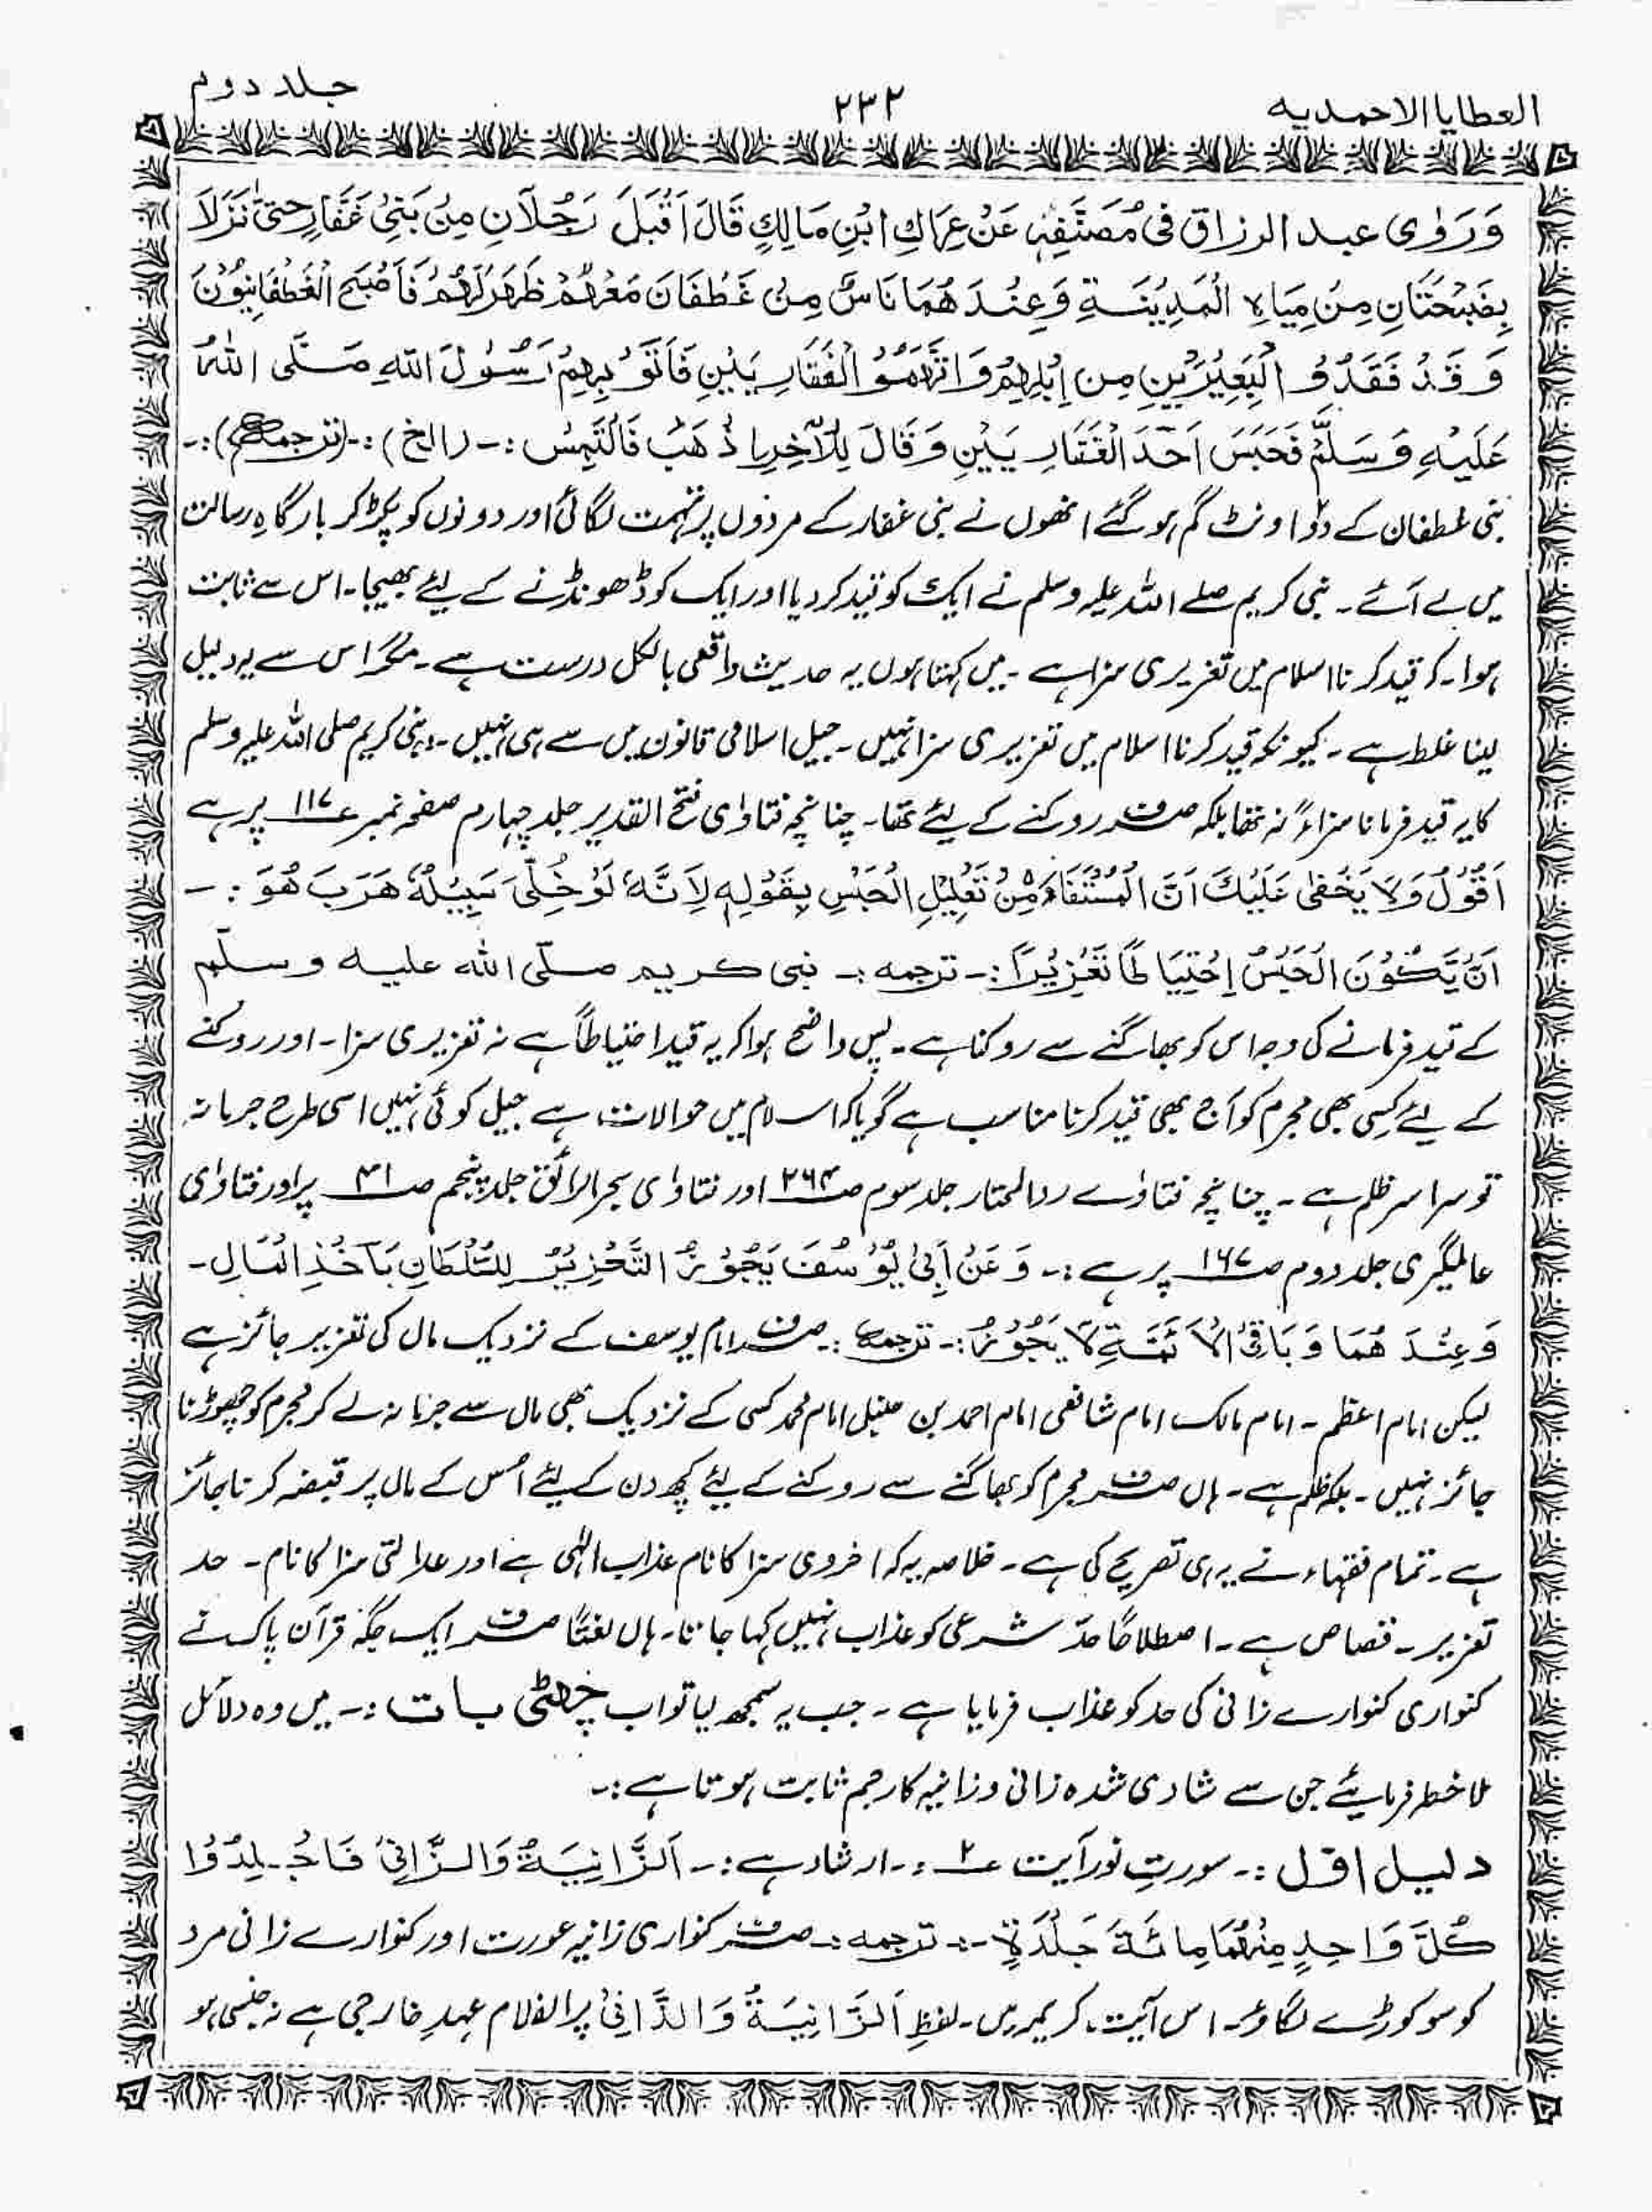 العطایا الاحمدیه ۲۳۲ جلد دوم
وَرَوٰی عبد الرزاق فی مُصَنَّفِہٖ عَنْ عِرَاكِ ابْنِ مَالِكٍ قَالَ اَقْبَلَ رَجُلَانِ مِنْ بَنِیْ غَفَّارٍ حتیّٰ نَزَلَا
بِضَبْحَتَانِ مِنْ مِیَاہِ الْمَدِیْنَةِ وَعِنْدَ ھُمَا نَاسٌ مِنْ غَطْفَانَ مَعَهُمْ ظَهَرٌ لَهُمْ فَاَصْبَحَ الْغَطْفَانِیُّوْنَ
وَقَدْ فَقَدُوْا الْبَعِیْرَیْنِ مِن اِبْلِهِمْ وَاتَّهَمُوْا الْغَفَّارِ یَیْنِ فَاَتَوْ بِهِمْ رَسُوْلَ اللّٰهِ صَلَّی اللّٰهُ
عَلَیْهِ وَسَلَّمَ فَحَبَسَ اَحَدَ الْغَفَّارِ یَیْنِ وَقَالَ لِلْاٰخِرِ اِذْھَبْ فَالْتَمِسْ :۔ (الخ) :۔ (ترجمہ) :۔
بنی غطفان کے دو اونٹ گم ہو گئے انھوں نے بنی غفار کے مردوں پر تہمت لگائی اور دونوں کو پکڑ کر بارگاہِ رسالت
میں لے آئے۔ نبی کریم صلے اللہ علیہ وسلم نے ایک کو قید کر دیا اور ایک کو ڈھونڈنے کے لیئے بھیجا۔ اس سے ثابت
ہوا۔ کہ قید کرنا اسلام میں تعزیری سزا ہے۔ میں کہتا ہوں یہ حدیث واقعی بالکل درست ہے۔ مگر اس سے یہ دلیل
لینا غلط ہے۔ کیونکہ قید کرنا اسلام میں تعزیری سزا نہیں۔ جیل اسلامی قانون میں سے ہی نہیں۔ نبی کریم صلی اللہ علیہ وسلم
کا یہ قید فرمانا سزاءً نہ تھا بلکہ صرف روکنے کے لیئے تھا۔ چنانچہ فتاوٰی فتح القدیر جلد چہارم صفحہ نمبر ۱۱۷ پر ہے
اَقُوْلُ وَلَا یَخْفٰی عَلَیْكَ اَنَّ الْمُسْتَفَادَ مِنْ تَعْلِیْلِ الْحَبْسِ بِقَوْلِہٖ لِاَنَّهٗ لَوْ خُلِّیَ سَبِیْلُهٗ هَرَبَ هُوَ :۔
اَنْ یَّكُوْنَ الْحَبْسُ اِحْتِیَاطًا تَعْزِیْرًا :۔ ترجمه :۔ نبی کریم صلّی الله علیه وسلّم
کے قید فرمانے کی وجہ اس کو بھاگنے سے روکنا ہے۔ پس واضح ہوا کہ یہ قید احتیاطاً ہے نہ تعزیری سزا۔ اور روکنے
کے لیئے کسی بھی مجرم کو آج بھی قید کرنا مناسب ہے گویا کہ اسلام میں حوالات ہے جیل کوئی نہیں اسی طرح جرمانہ
تو سراسر ظلم ہے۔ چنانچہ فتاوٰے رد المحتار جلد سوم ص۲۶۴ اور فتاوٰی بحر الرائق جلد پنجم ص۴۱ پر اور فتاوٰی
عالمگیری جلد دوم ص۱۶۷ پر ہے :۔ وَعَنْ اَبِیْ یُوْسُفَ یَجُوْزُ التَّعْزِیْرُ لِلسُّلْطَانِ بَاَخْذِ الْمَالِ۔
وَعِنْدَ هُمَا وَبَاقِیْ الْاَئَمَّةِ لَا یَجُوْزُ :۔ ترجمه :۔ صرف امام یوسف کے نزدیک مال کی تعزیر جائز ہے
لیکن امام اعظم۔ امام مالک امام شافعی امام احمد بن حنبل امام محمد کسی کے نزدیک بھی مال سے جرمانہ لے کر مجرم کو چھوڑنا
جائز نہیں۔ بلکہ ظلم ہے۔ ہاں صرف مجرم کو بھاگنے سے روکنے کے لیئے کچھ دن کے لیئے اُس کے مال پر قبضہ کرنا جائز
ہے۔ تمام فقہاء نے یہ ہی تصریح کی ہے۔ خلاصہ یہ کہ اخروی سزا کا نام عذاب الٰہی ہے اور عدالتی سزا کا نام۔ حد
تعزیر۔ قصاص ہے۔ اصطلاحًا حدّ شرعی کو عذاب نہیں کہا جاتا۔ ہاں لغتًا صرف ایک جگہ قرآن پاک نے
کنواری کنوارے زانی کی حد کو عذاب فرمایا ہے۔ جب یہ سمجھ لیا تو اب چھٹی بات :۔ میں وہ دلائل
ملاحظہ فرمائیے جن سے شادی شدہ زانی و زانیہ کا رجم ثابت ہوتا ہے :۔
دلیل اوّل :۔ سورتِ نور آیت ۲ :۔ ارشاد ہے :۔ اَلزَّانِیَةُ وَالزَّانِیْ فَاجْلِدُوْا
كُلَّ وَاحِدٍ مِنْهُمَا مِائَةَ جَلْدَةٍ :۔ ترجمه :۔ صرف کنواری زانیہ عورت اور کنوارے زانی مرد
کو سو کوڑے لگاؤ۔ اس آیت کریمہ میں۔ لفظِ اَلزَّانِیَةُ وَالزَّانِیْ پر الف لام عہدِ خارجی ہے نہ جنسی ہو